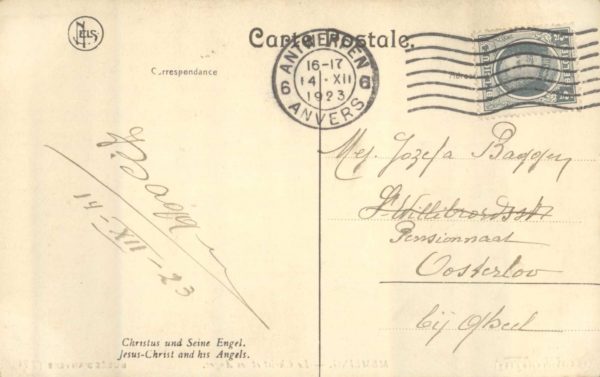 NELS
Carte Postale.
Correspondance
ANTWERPEN
6 16-17 6
14 · XII
1923
ANVERS
Mej. Jozefa Baggen
St Willibrordsstr
Pensionnaat
Oosterloo
bij Gheel
J. Baggen
14-XII-23
Christus und Seine Engel.
Jesus-Christ and his Angels.